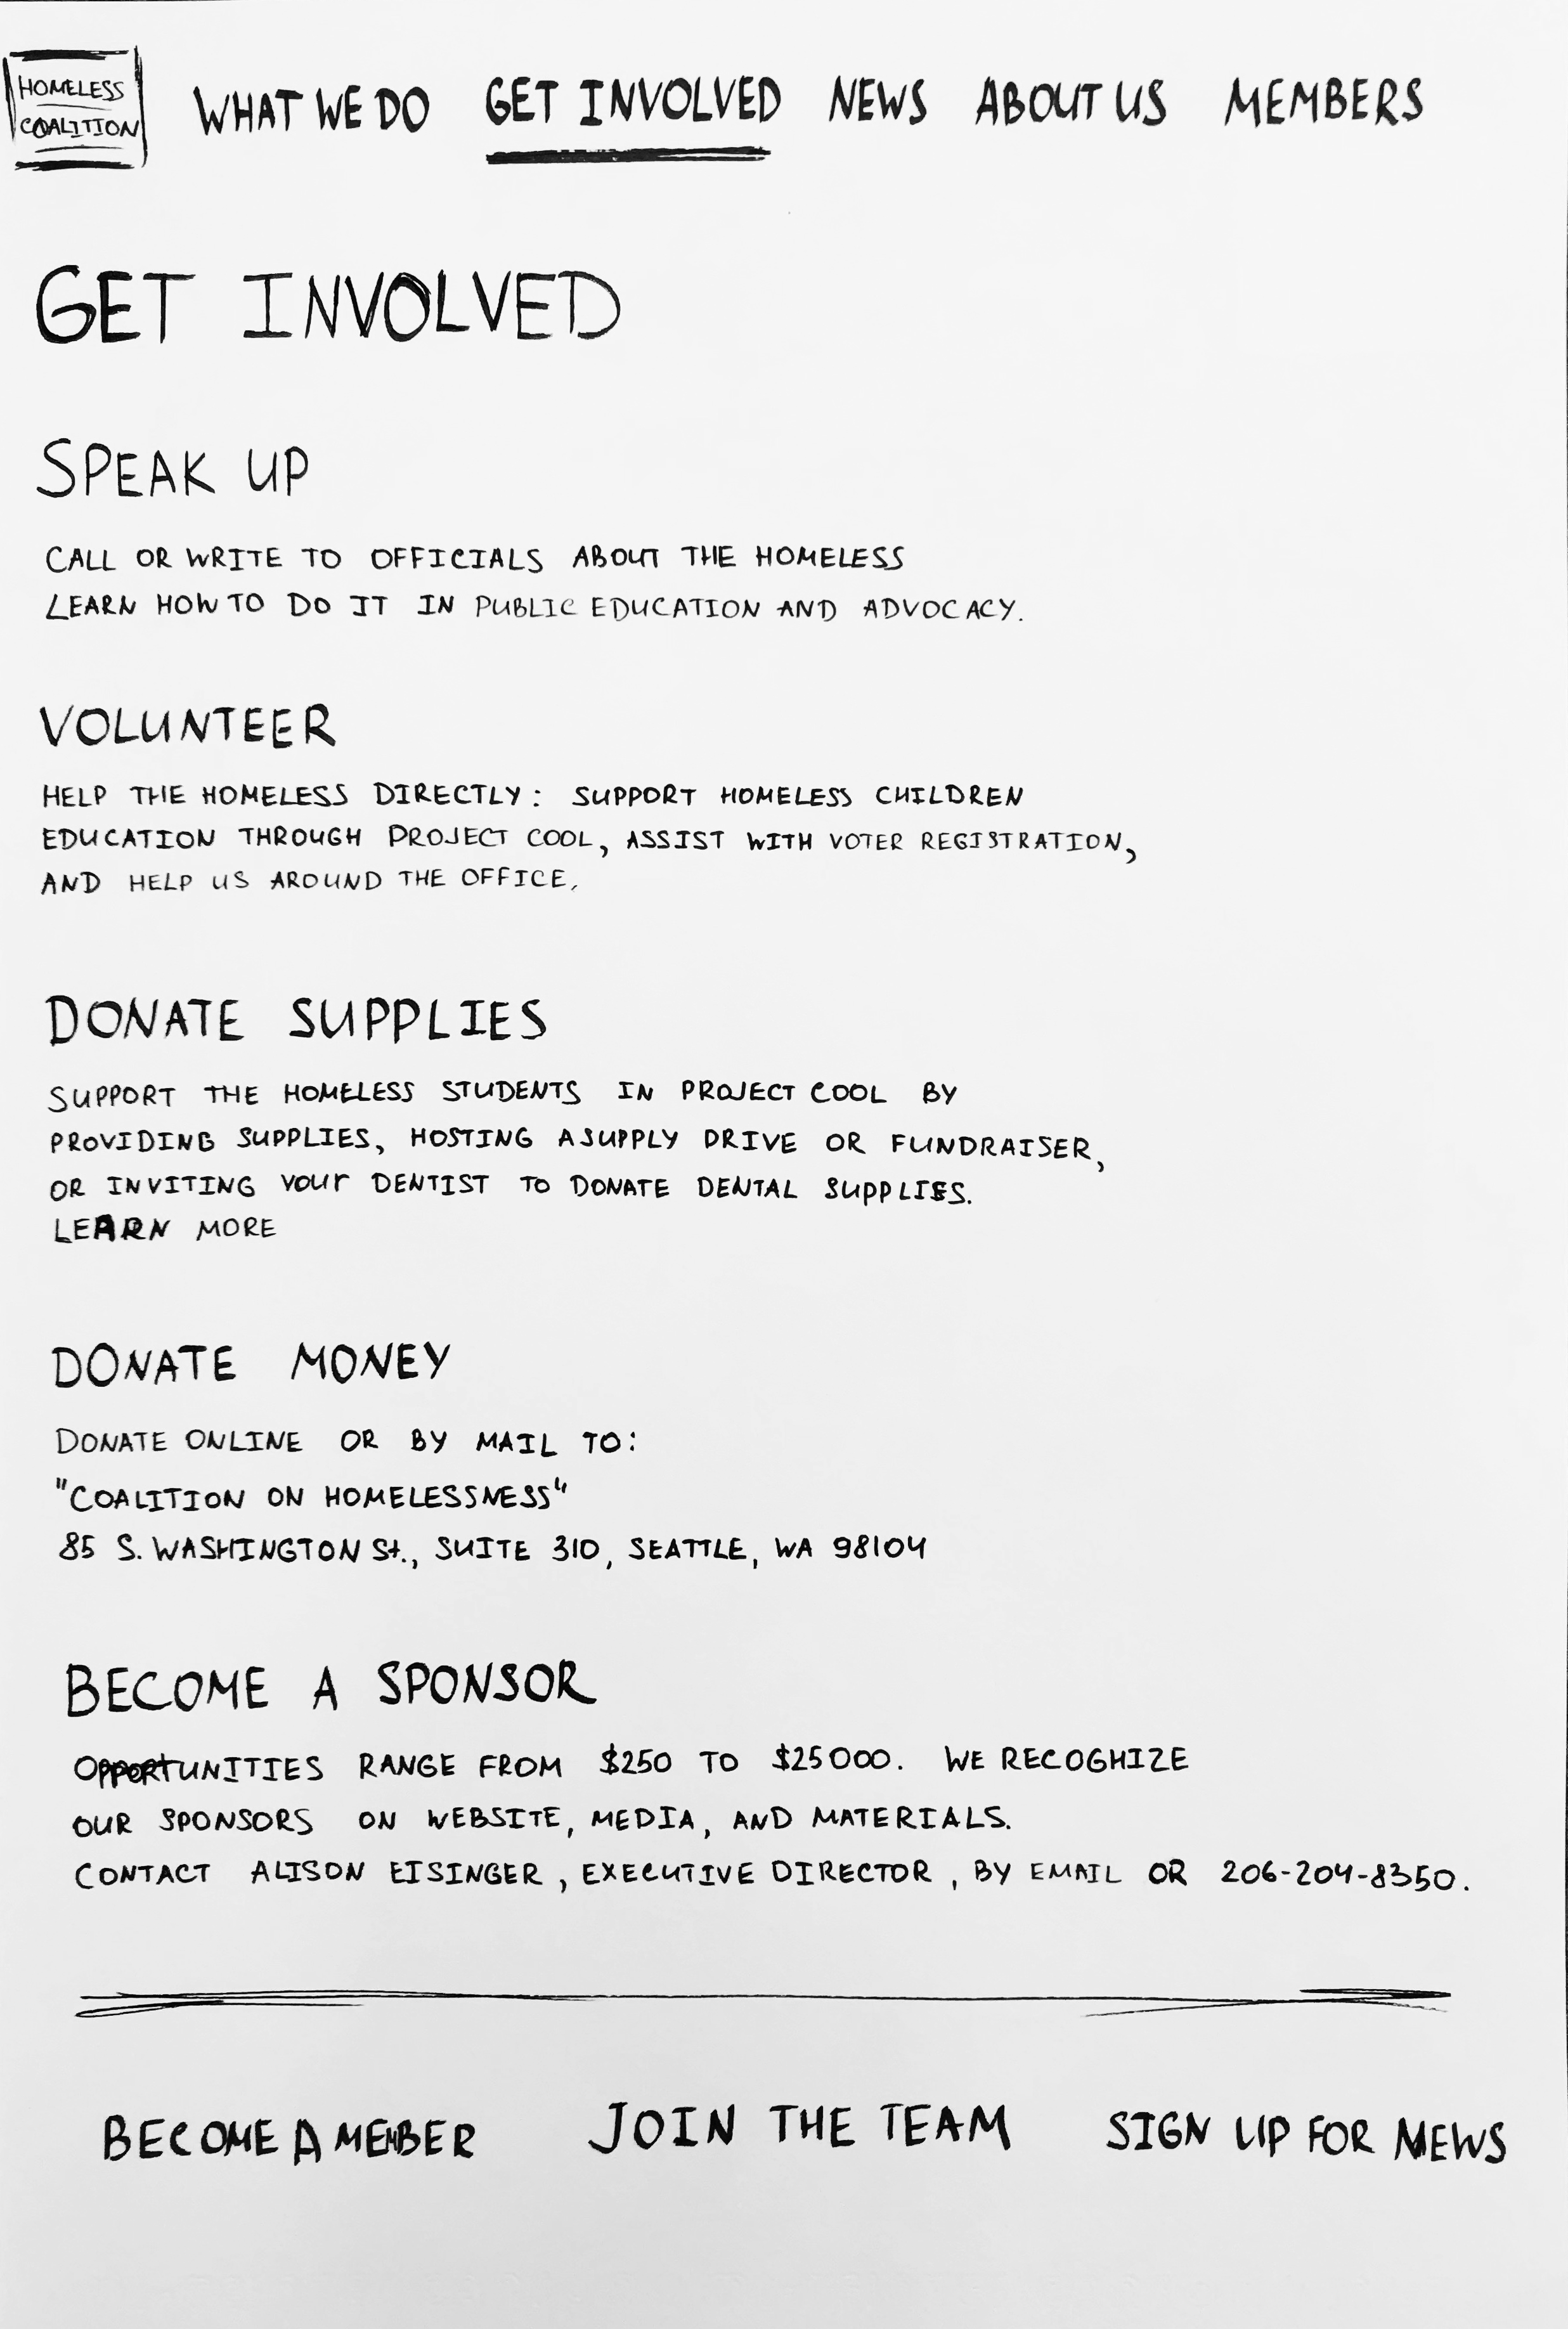 HOMELESS
COALITION
WHAT WE DO GET INVOLVED NEWS ABOUT US MEMBERS
GET INVOLVED
SPEAK UP
CALL OR WRITE TO OFFICIALS ABOUT THE HOMELESS
LEARN HOW TO DO IT IN PUBLIC EDUCATION AND ADVOCACY.
VOLUNTEER
HELP THE HOMELESS DIRECTLY: SUPPORT HOMELESS CHILDREN
EDUCATION THROUGH PROJECT COOL, ASSIST WITH VOTER REGISTRATION,
AND HELP US AROUND THE OFFICE.
DONATE SUPPLIES
SUPPORT THE HOMELESS STUDENTS IN PROJECT COOL BY
PROVIDING SUPPLIES, HOSTING A SUPPLY DRIVE OR FUNDRAISER,
OR INVITING YOUr DENTIST TO DONATE DENTAL SUPPLIES.
LEARN MORE
DONATE MONEY
DONATE ONLINE OR BY MAIL TO:
"COALITION ON HOMELESSNESS"
85 S. WASHINGTON St., SUITE 310, SEATTLE, WA 98104
BECOME A SPONSOR
OPPORTUNITIES RANGE FROM $250 TO $25000. WE RECOGHIZE
OUR SPONSORS ON WEBSITE, MEDIA, AND MATERIALS.
CONTACT ALISON EISINGER, EXECUTIVE DIRECTOR, BY EMAIL OR 206-204-8350.
BECOME A MEMBER JOIN THE TEAM SIGN UP FOR NEWS